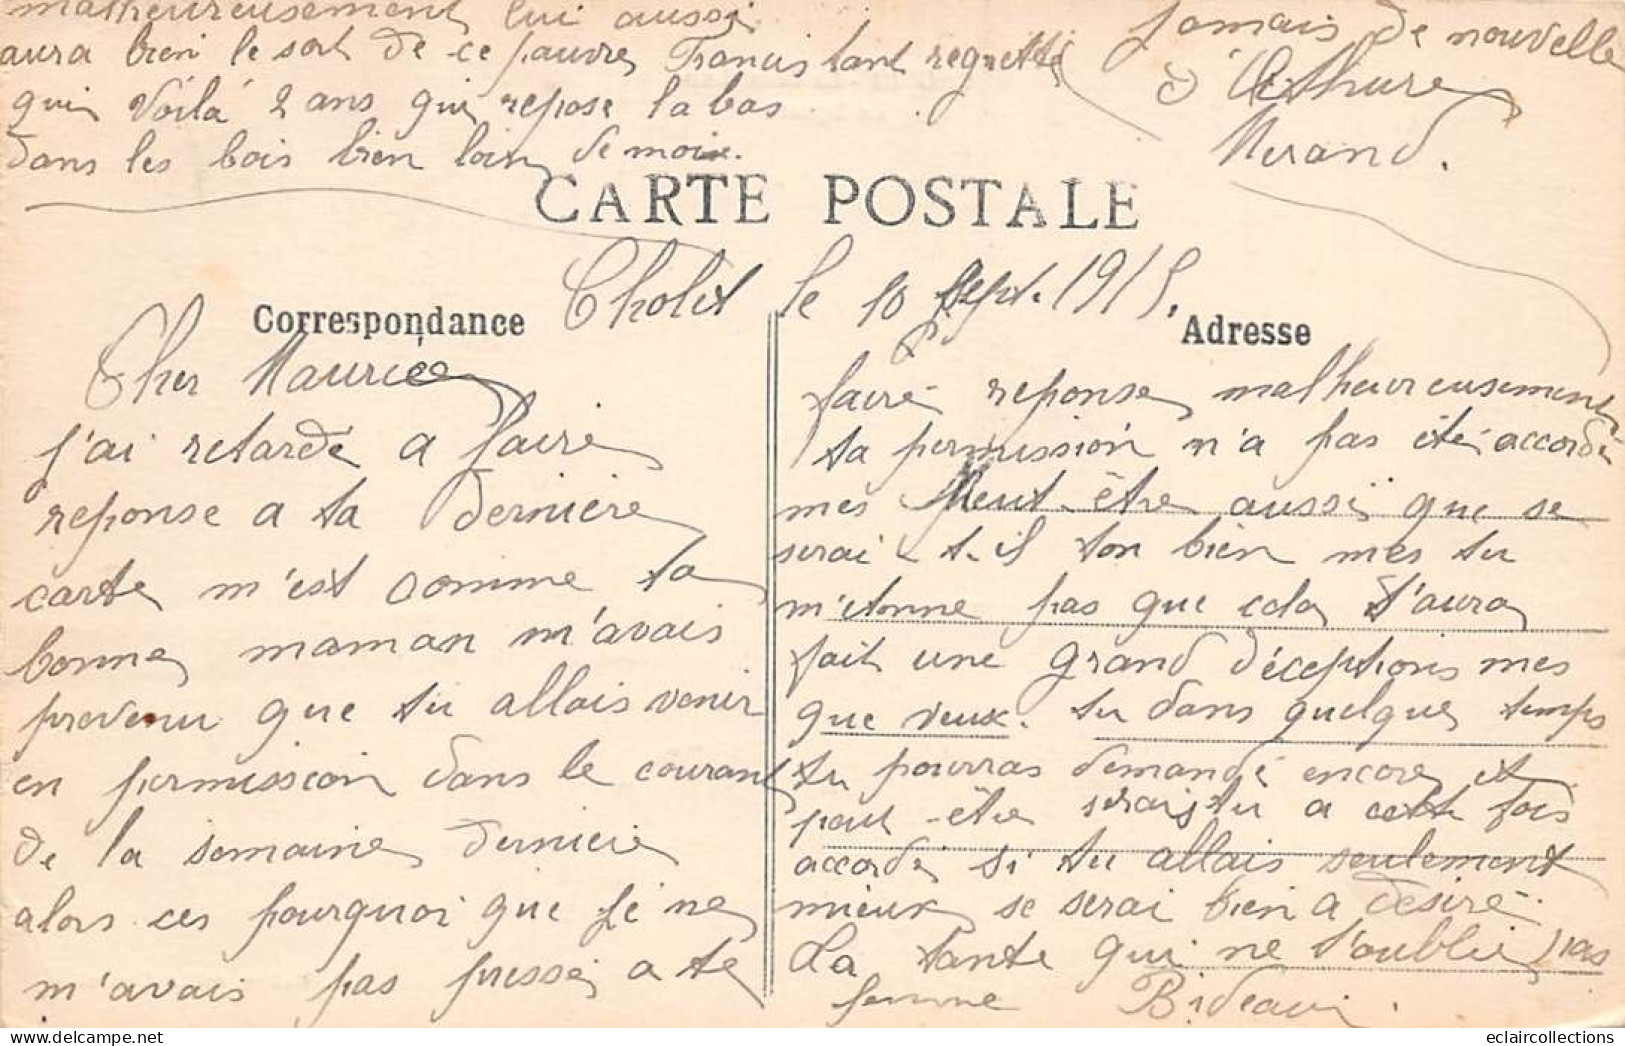 malheureusement lui aussi
aura bien le sort de ce pauvre Francis tant regretté
qui voilà 2 ans qui repose la bas
dans les bois bien loin de moi.
Jamais de nouvelle
d'Athure
Merand.
CARTE POSTALE
Cholet le 10 Sept. 1915.
Correspondance
Adresse
Cher Maurice
j'ai retardé a faire
reponse a ta derniere
carte m'est comme ta
bonne maman m'avais
prevenu que tu allais venir
en permission dans le courant
de la semaine derniere
alors ces pourquoi que je ne
m'avais pas pressé a te
faire reponse malheureusement
ta permission n'a pas été accordé
mes peut-être aussi que se
serai-t-il ton bien mes tu
m'etonne pas que cela t'aura
fait une grand déceptions mes
que veux. tu dans quelque temps
tu pourras demandé encore et
peut-être serais tu a cette fois
accordé si tu allais seulement
mieux se serai bien a desiré.
La tante qui ne t'oublie pas
femme Bideaui.
eclaircollections